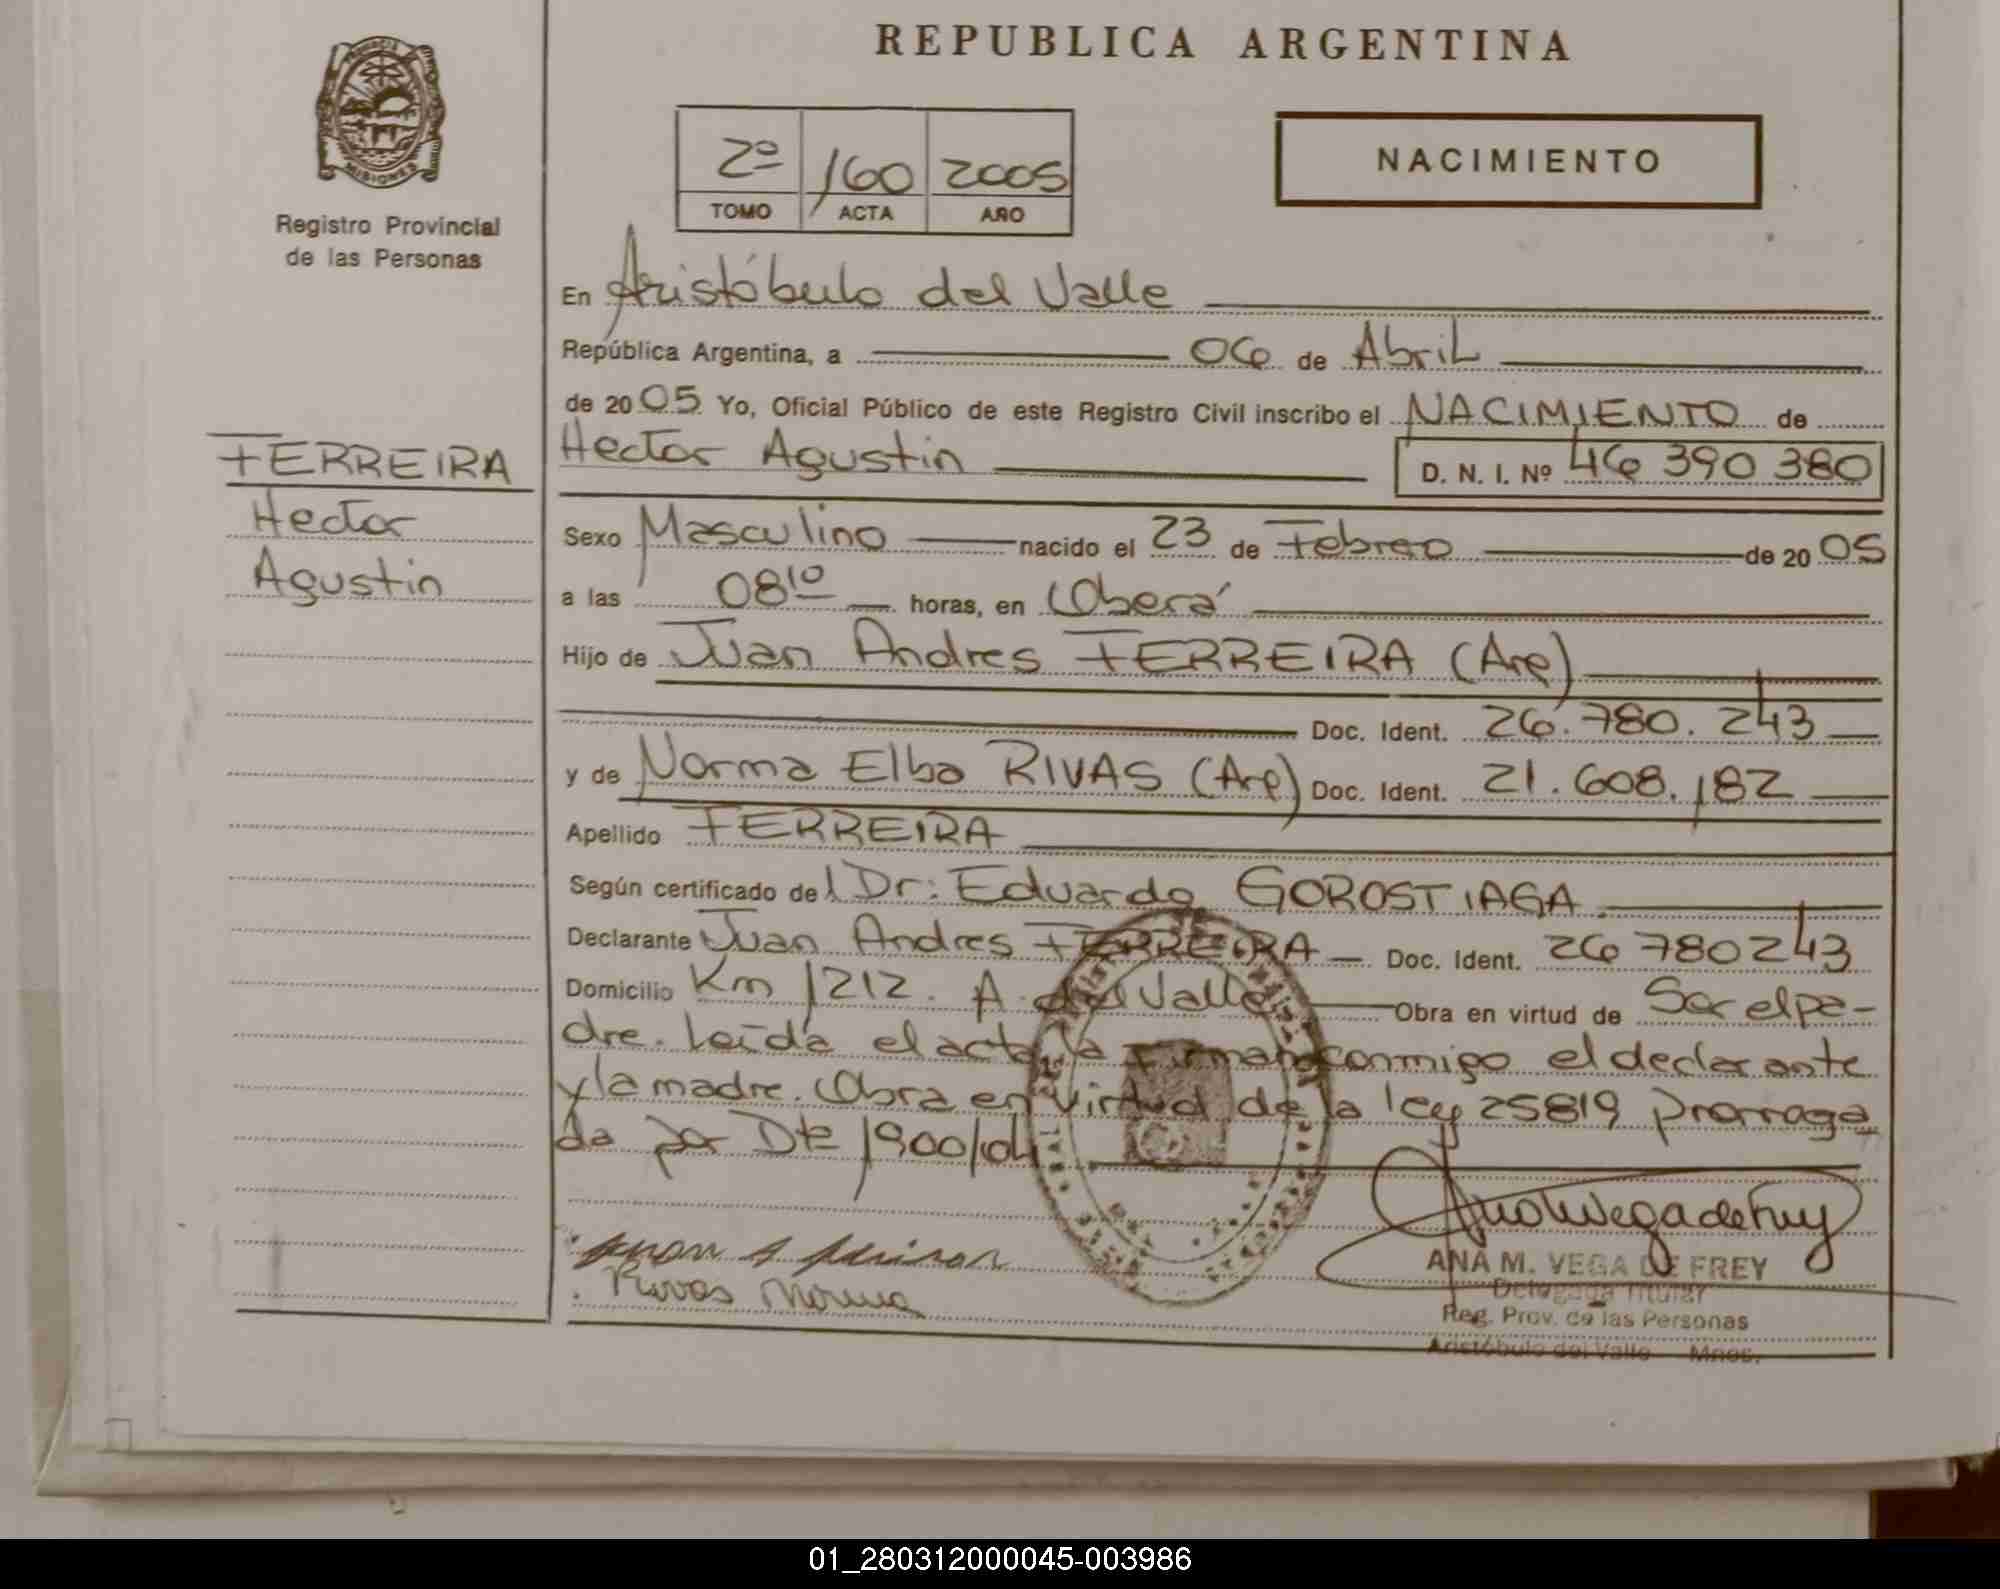 REPUBLICA ARGENTINA
PROVINCIA
MISIONES
Registro Provincial
de las Personas
2º /160 2005
TOMO ACTA AÑO
NACIMIENTO
En Aristóbulo del Valle
República Argentina, a 06 de Abril
de 2005 Yo, Oficial Público de este Registro Civil inscribo el NACIMIENTO de
Hector Agustin D. N. I. Nº 46 390 380
FERREIRA
Hector
Agustin
Sexo Masculino nacido el 23 de Febrero de 2005
a las 08¹⁰ horas, en Oberá
Hijo de Juan Andres FERREIRA (Arg)
Doc. Ident. 26.780.243
y de Norma Elba RIVAS (Arg) Doc. Ident. 21.608.182
Apellido FERREIRA
Según certificado del Dr: Eduardo GOROSTIAGA
Declarante Juan Andres FERREIRA Doc. Ident. 26 780 243
Domicilio Km 1212. A. del Valle Obra en virtud de Ser el pa-
dre. Leída el acta la firman conmigo el declarante
y la madre. Obra en virtud de la ley 25819 prorroga
da por Dte 1900/04
Juan A
Rivas Norma
ANA M. VEGA DE FREY
Delegada Titular
Reg. Prov. de las Personas
Aristóbulo del Valle Mnes.
01_280312000045-003986